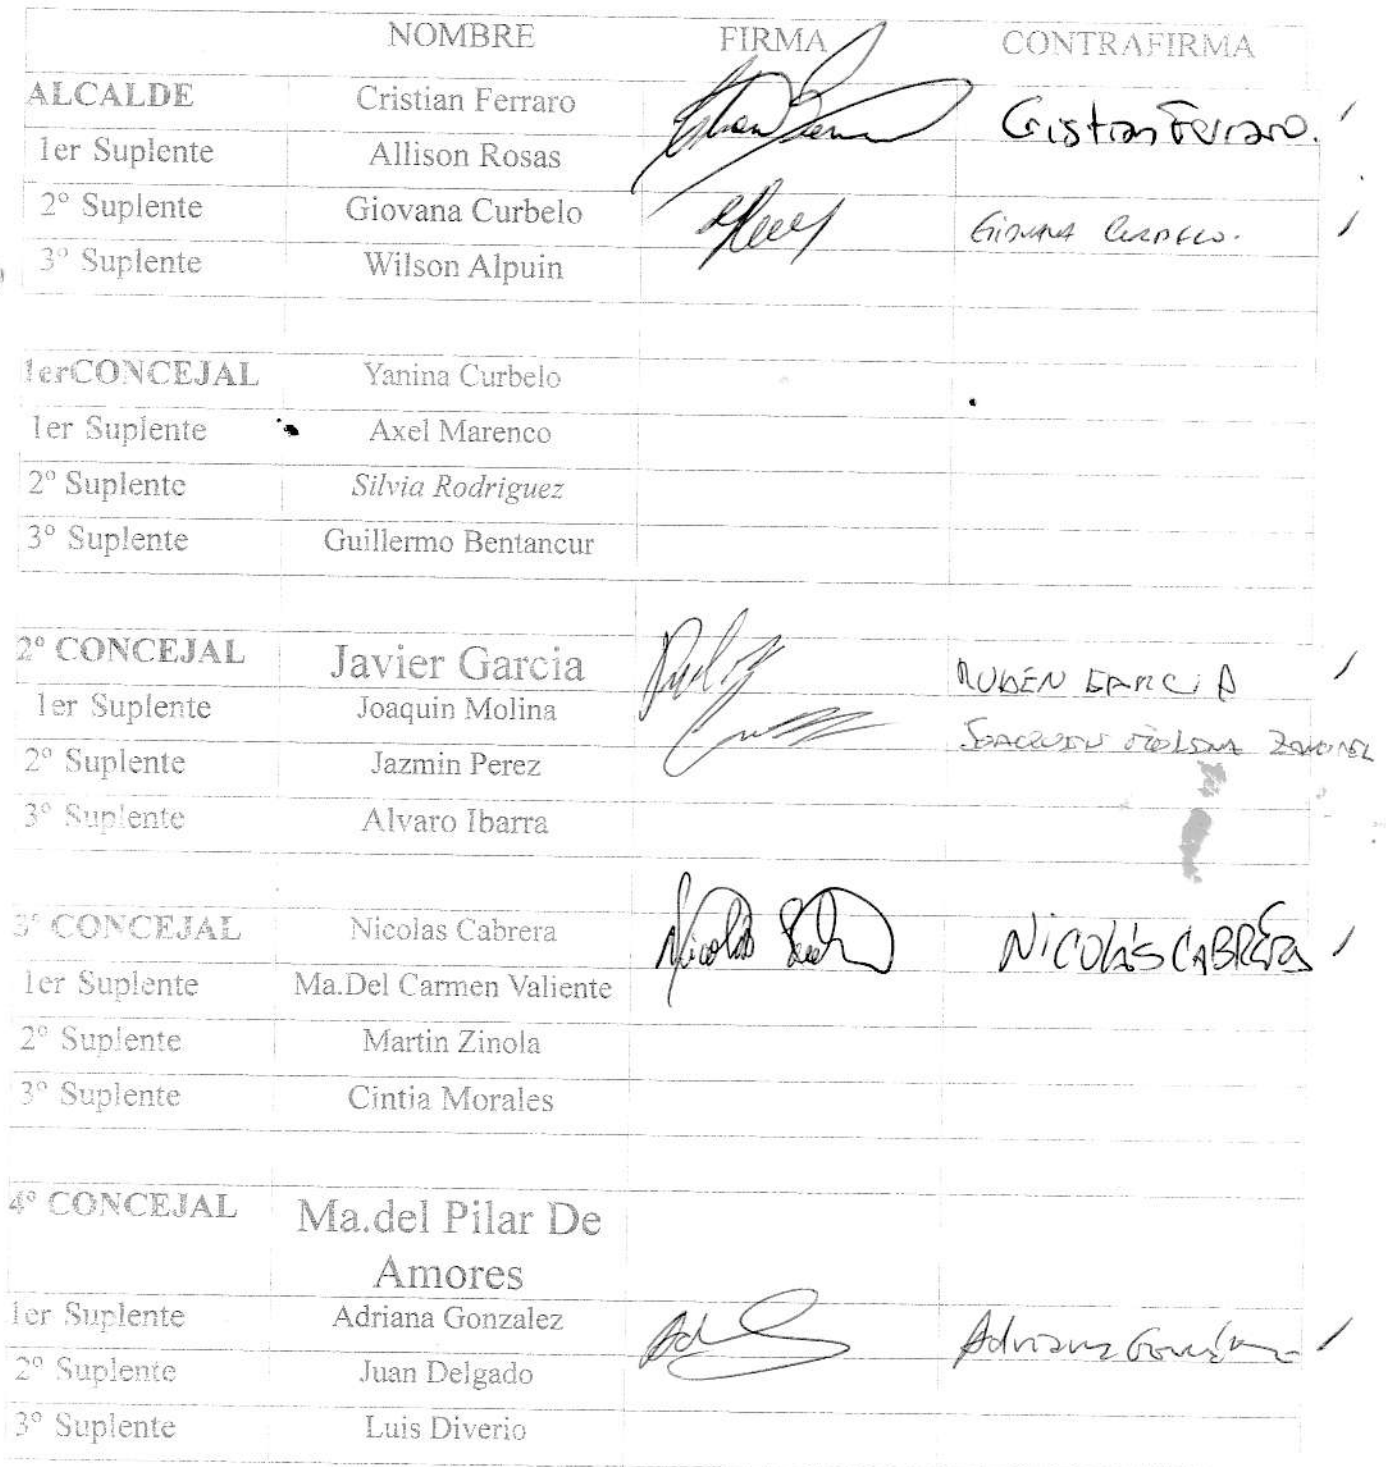 NOMBRE FIRMA CONTRAFIRMA
ALCALDE Cristian Ferraro Cristian Ferraro.
1er Suplente Allison Rosas
2º Suplente Giovana Curbelo Giovana Curbelo.
3º Suplente Wilson Alpuin
1erCONCEJAL Yanina Curbelo
1er Suplente Axel Marenco
2º Suplente Silvia Rodriguez
3º Suplente Guillermo Bentancur
2º CONCEJAL Javier Garcia RUBÉN GARCIA
1er Suplente Joaquin Molina JOAQUIN MOLINA
2º Suplente Jazmin Perez
3º Suplente Alvaro Ibarra
3º CONCEJAL Nicolas Cabrera Nicolás NICOLÁS CABRERA
1er Suplente Ma.Del Carmen Valiente
2º Suplente Martin Zinola
3º Suplente Cintia Morales
4º CONCEJAL Ma.del Pilar De
Amores
1er Suplente Adriana Gonzalez Adriana González
2º Suplente Juan Delgado
3º Suplente Luis Diverio